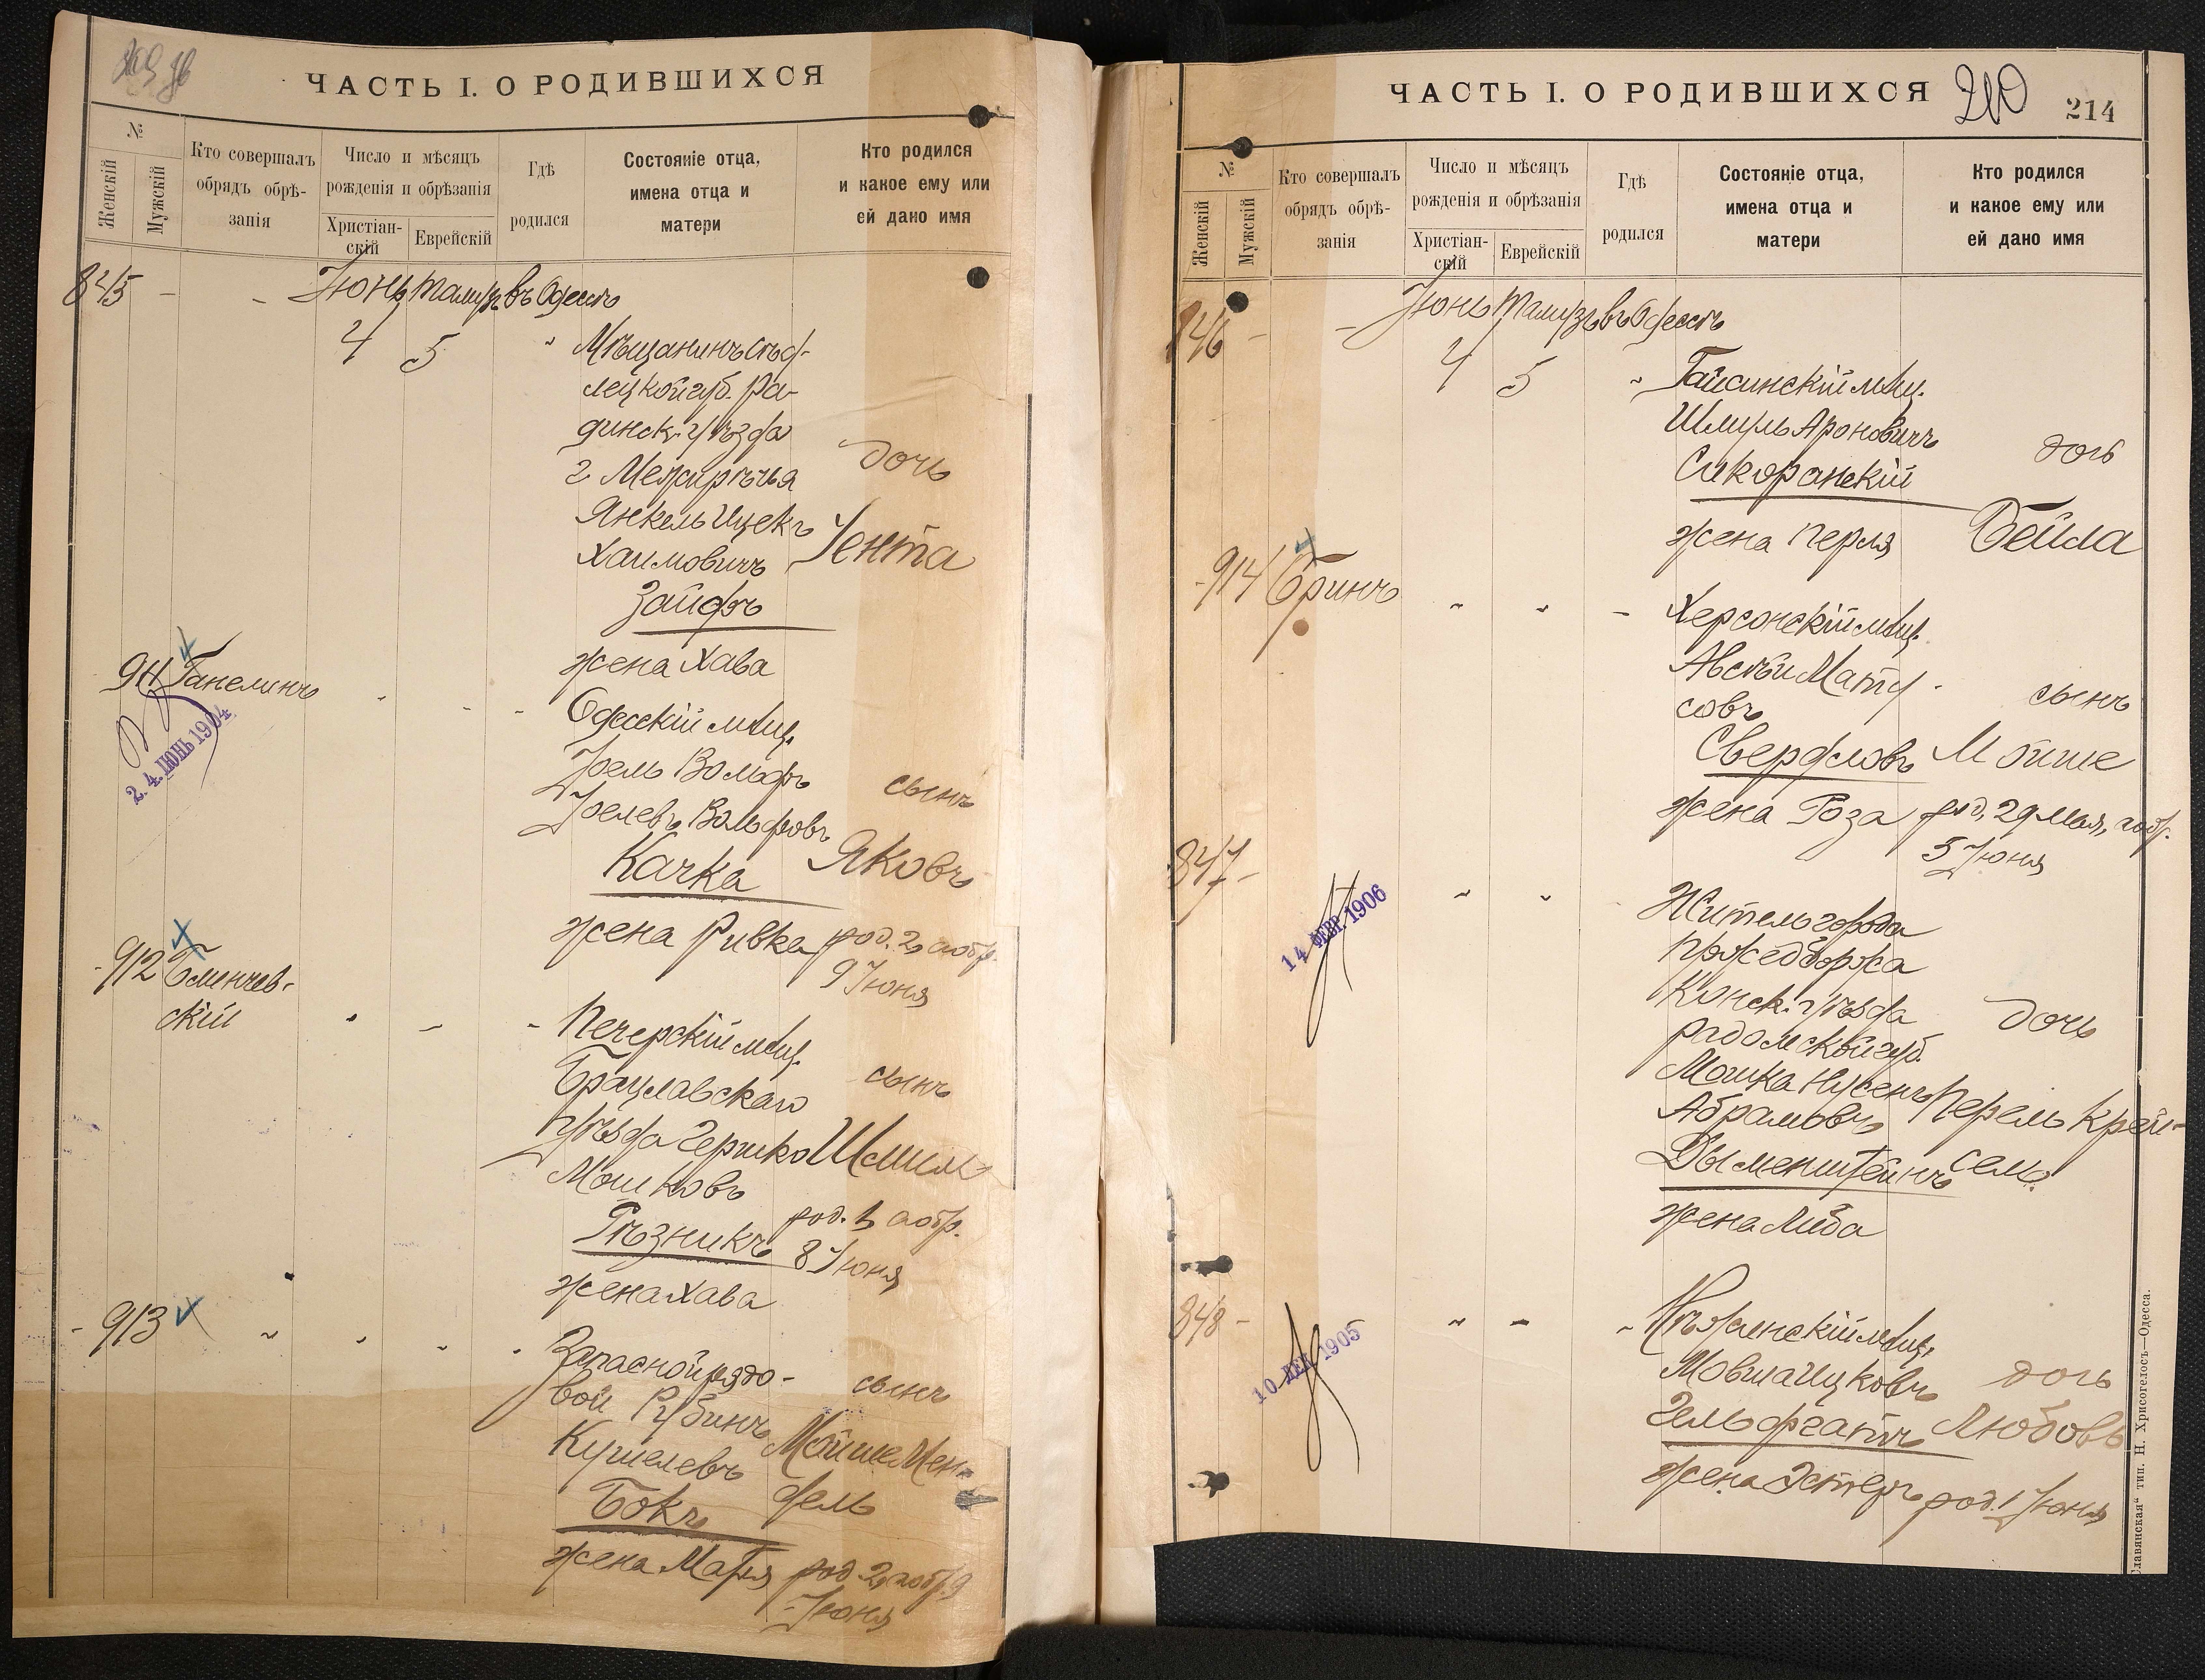 ЧАСТЬ I. О РОДИВШИХСЯ
№
Женскій
Мужскій
Кто совершалъ
обрядъ обрѣ-
занія
Число и мѣсяцъ
рожденія и обрѣзанія
Христіан-
скій
Еврейскій
Гдѣ
родился
Состояніе отца,
имена отца и
матери
Кто родился
и какое ему или
ей дано имя
845 - - Іюнь Тамузъ въ Одессѣ
4 5 " Мѣщанинъ Сѣд-
лецкой губ. Ра-
динск. уѣзда
г Межирѣчья
дочь
Янкель Ицекъ
Хаимовичъ Іента
Зайфъ
жена Хава
911 Ганелинъ
2. 4. ІЮНЬ 1904
Одесскій мѣщ.
Іоель Вольфъ
сынъ
Іоелевъ Вольфовъ
Качка Яковъ
жена Ривка род. 2, а обр.
9 Іюня
912
скій
Печерскій мѣщ.
Брацлавскаго
сынъ
уѣзда Гершко Шмиль
Мошковъ
Рѣзникъ
род. 1, а обр.
8 Іюня
жена Хава
913 Запасной рядо-
вой Рубинъ
сынъ
Кушелевъ Мойше Мен-
дель
Бокъ
жена Матля род. 2, а обр. 9
Іюня
ЧАСТЬ I. О РОДИВШИХСЯ
210
214
№
Женскій
Мужскій
Кто совершалъ
обрядъ обрѣ-
занія
Число и мѣсяцъ
рожденія и обрѣзанія
Христіан-
скій
Еврейскій
Гдѣ
родился
Состояніе отца,
имена отца и
матери
Кто родился
и какое ему или
ей дано имя
846 - - Іюнь Тамузъ въ Одессѣ
4 5 " Гайсинскій мѣщ.
Шмуль Ароновичъ
дочь
Сикоранскій
жена Перля Бейла
914 Бринъ
Херсонскій мѣщ.
Авсѣй Мату-
совъ
сынъ
Свердловъ Мойше
жена Роза род. 29 Мая, а обр.
5 Іюня
847 -
14 ФЕВР. 1906
Житель города
Пржедборжа
Конск. уѣзда
дочь
Радомской губ.
Мошка Нусенъ Перель Крей-
Абрамовъ
Дыменштейнъ
сель
жена Либа
848 -
10 ДЕК. 1905
Нѣжинскій мѣщ.
Мовша Ицковъ
дочь
Гельфгатъ Любовь
жена Эстеръ род. 1 Іюня
„Славянская“ тип. Н. Хрисогелосъ—Одесса.